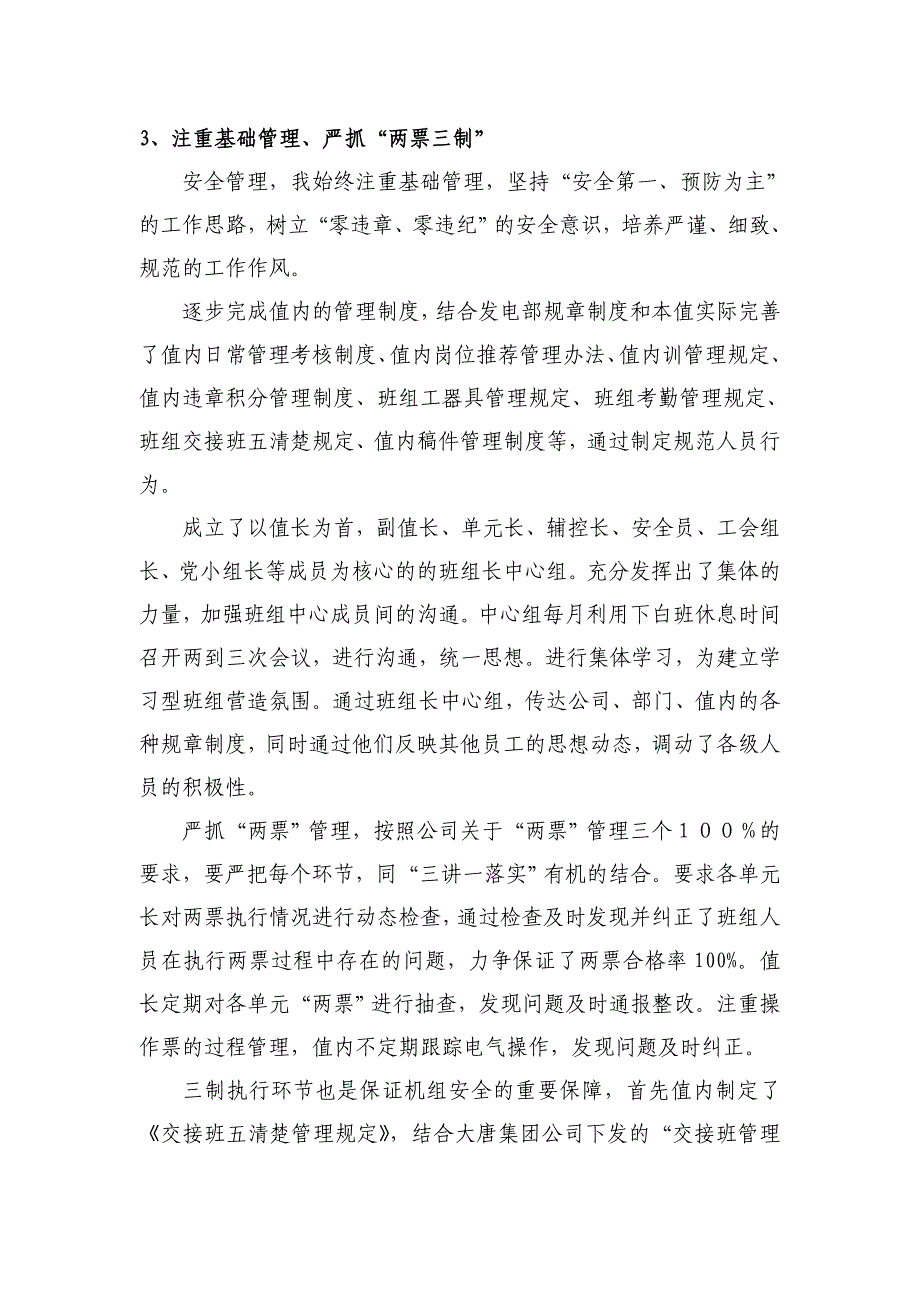 3、注重基础管理、严抓“两票三制”
安全管理，我始终注重基础管理，坚持“安全第一、预防为主”
的工作思路，树立“零违章、零违纪”的安全意识，培养严谨、细致、
规范的工作作风。
逐步完成值内的管理制度，结合发电部规章制度和本值实际完善
了值内日常管理考核制度、值内岗位推荐管理办法、值内训管理规定、
值内违章积分管理制度、班组工器具管理规定、班组考勤管理规定、
班组交接班五清楚规定、值内稿件管理制度等，通过制定规范人员行
为。
成立了以值长为首，副值长、单元长、辅控长、安全员、工会组
长、党小组长等成员为核心的的班组长中心组。充分发挥出了集体的
力量，加强班组中心成员间的沟通。中心组每月利用下白班休息时间
召开两到三次会议，进行沟通，统一思想。进行集体学习，为建立学
习型班组营造氛围。通过班组长中心组，传达公司、部门、值内的各
种规章制度，同时通过他们反映其他员工的思想动态，调动了各级人
员的积极性。
严抓“两票”管理，按照公司关于“两票”管理三个１００%的
要求，要严把每个环节，同“三讲一落实”有机的结合。要求各单元
长对两票执行情况进行动态检查，通过检查及时发现并纠正了班组人
员在执行两票过程中存在的问题，力争保证了两票合格率 100%。值
长定期对各单元“两票”进行抽查，发现问题及时通报整改。注重操
作票的过程管理，值内不定期跟踪电气操作，发现问题及时纠正。
三制执行环节也是保证机组安全的重要保障，首先值内制定了
《交接班五清楚管理规定》，结合大唐集团公司下发的“交接班管理